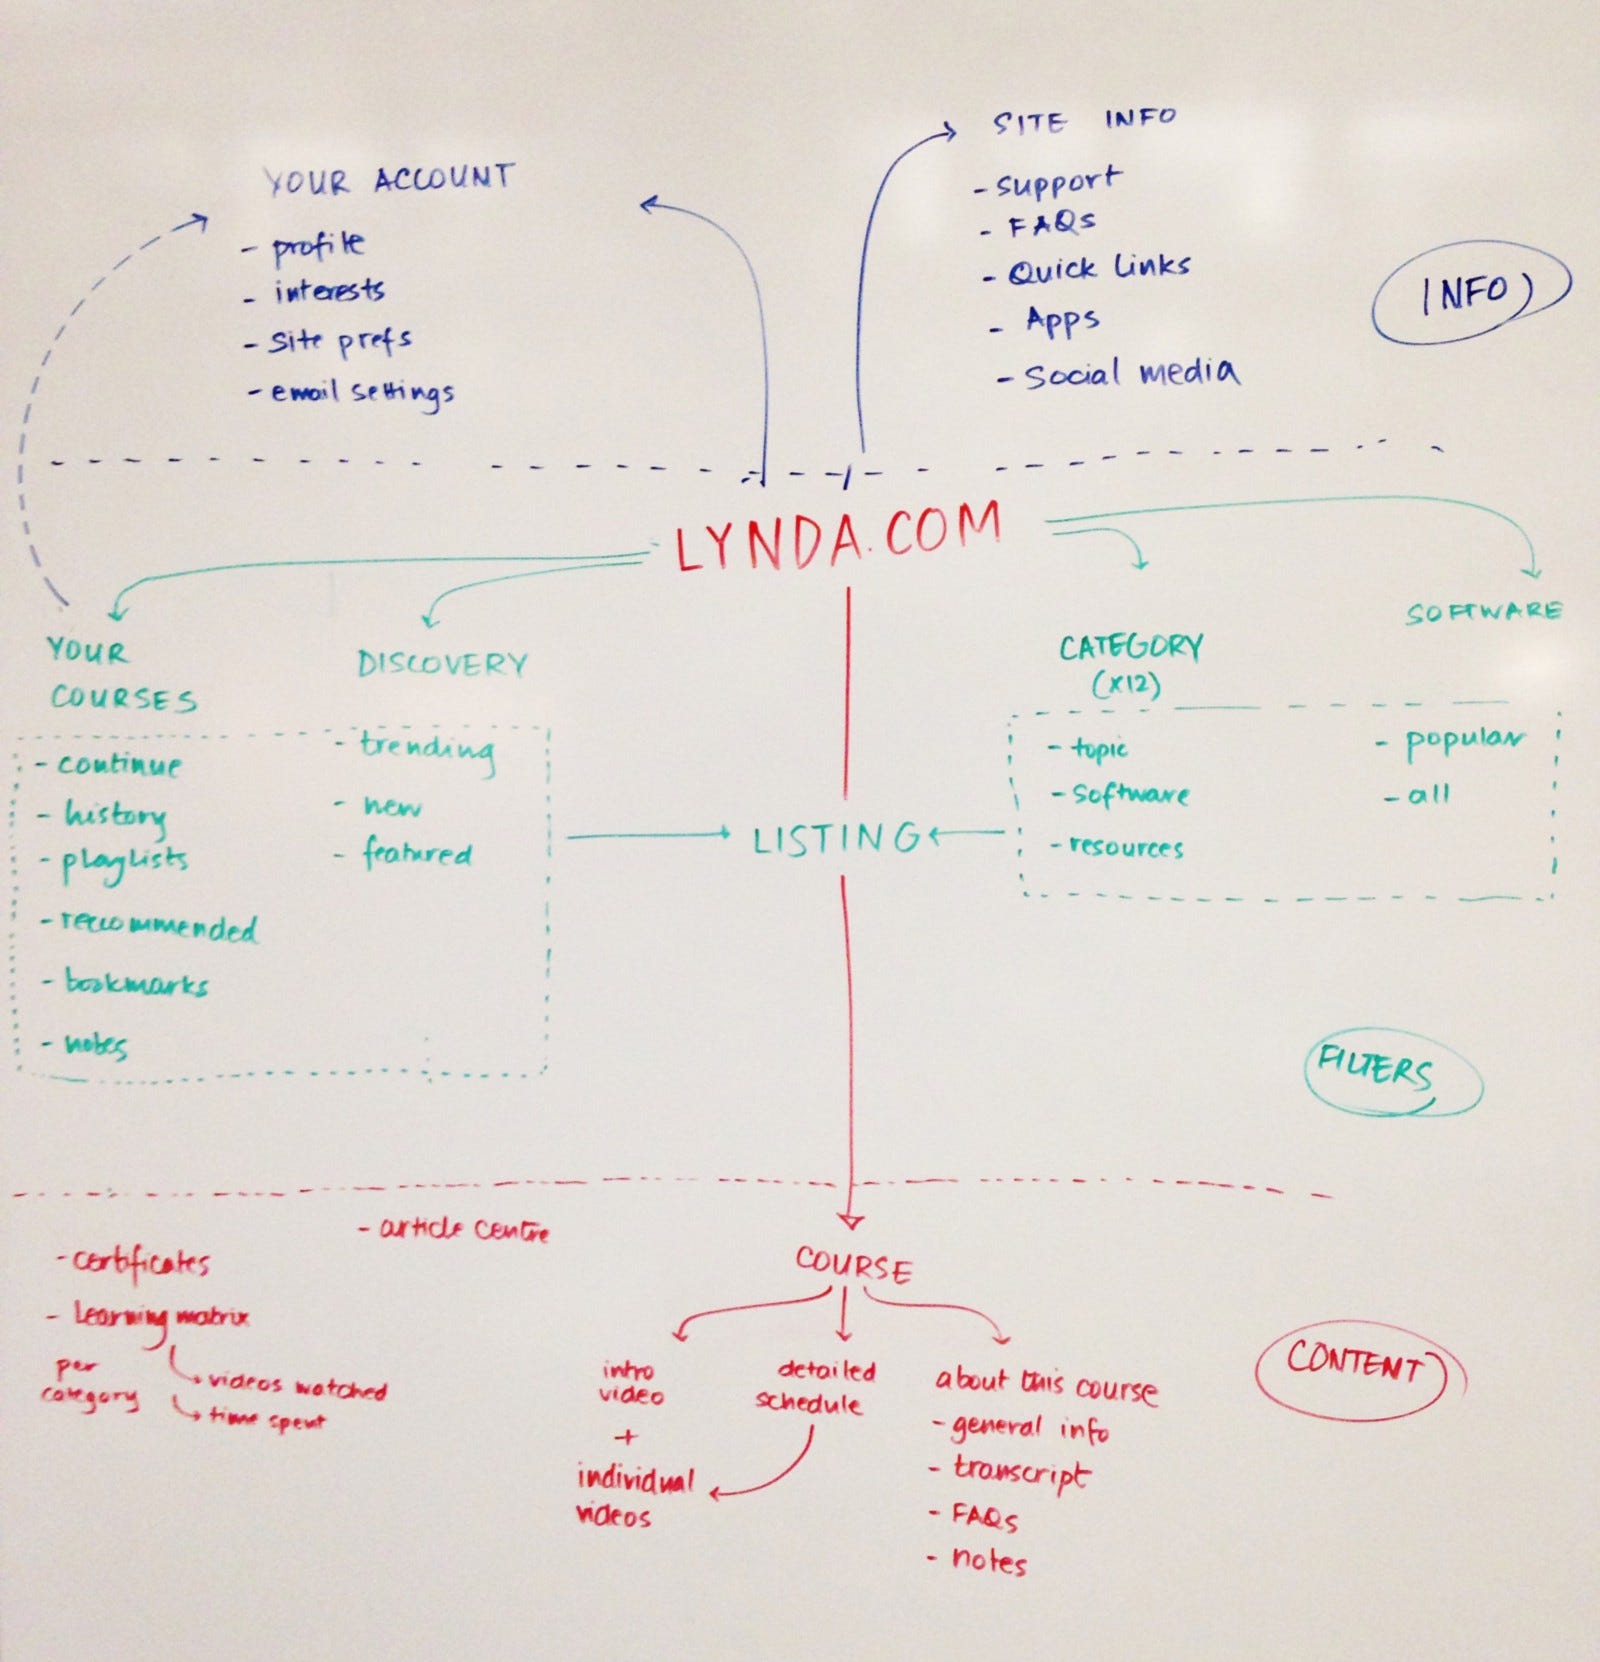 SITE INFO
- support
- FAQs
- Quick Links
- Apps
- Social media
YOUR ACCOUNT
- profile
- interests
- Site prefs
- email settings
INFO
LYNDA.COM
YOUR
COURSES
- continue
- history
- playlists
- reccommended
- bookmarks
- notes
DISCOVERY
- trending
- new
- featured
LISTING
CATEGORY
(X12)
- topic
- software
- resources
SOFTWARE
- popular
- all
FILTERS
- article centre
- certificates
- Learning matrix
per
category
videos watched
time spent
COURSE
intro
video
+
individual
videos
detailed
schedule
about this course
- general info
- transcript
- FAQs
- notes
CONTENT